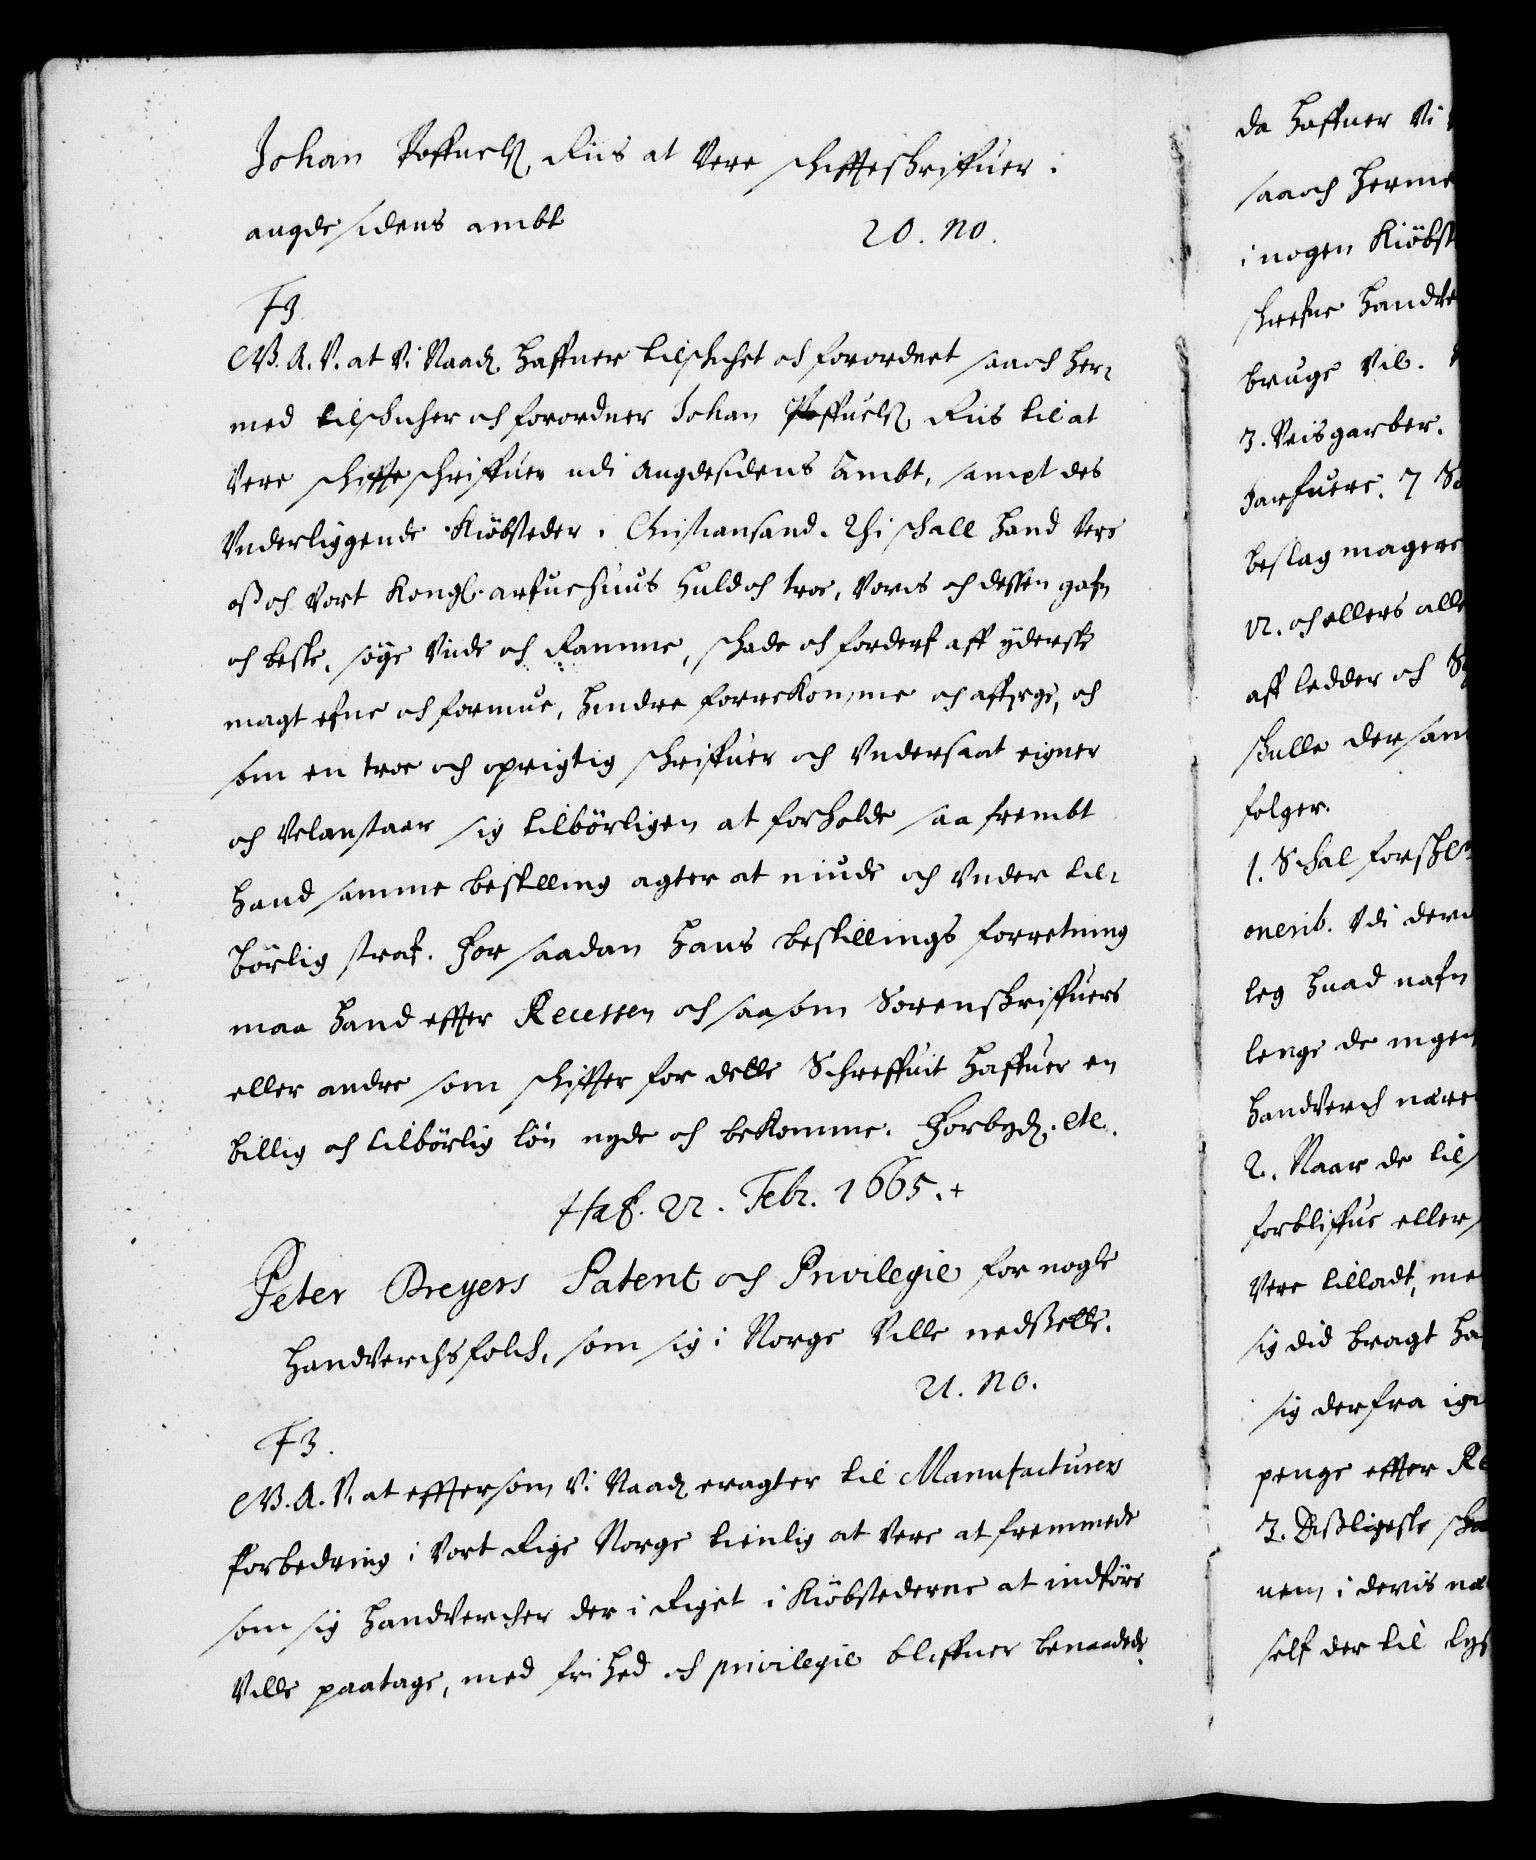 Johan Poffuelß. Riis at Vere schiffteskriffuer i
angdesidens ambt
20. no.
F3
G.B.A.V. at Vi Naad. Haffuer tilschichet och forordnet saa och her-
med tilschicher och forordner Johan Poffuelß. Riis til at
Vere schiffteschriffuer udi Angdesidens Ambt, sampt des
Underliggende Kiöbsteder. Christiansand. Thi schall hand Vere
oß och Vort Kongl. arfuehuus huld och troe, Voris och dessen gafn
och beste, söge Vide och Ramme, schade och forderf aff yderste
magt efne och formue, hindre forrekomme och affverge, och
som en troe och oprigtig schriffuer och Undersaat eigner
och Velanstaar sig tilbörligen at forholde saa frembt
hand samme bestilling agter at niude och Under til-
börlig straf. For saadan hans bestillings forretning
maa hand effter Recessen och saa som Sorenskriffuers
eller andre som schiffter for dette Schreffuit haffuer en
billig och tilbörlig lön nyde och bekomme. Forbyd. etc.
Haf. 22. Febr. 1665.+
Peter Dreyers Patent och Privilegie for nogle
Handverchsfolch, som sig i Norge Ville nedsette.
21. no.
F3.
G.B.A.V. at effter som Vi Naad eragter til Manufacturers
forbedring i Vort Rige Norge tienlig at Vere at fremmede
som sig Handvercher der i Riget i Kiöbstederne at indföre
Ville paatage, med frihed och privilegie bliffuer benaadede
da Haffuer Vi
saa och herme
i nogen Kiöbst
schrefne Handve
bruge Vil.
3. Veisgarber.
farfuere. 7 S
beslagmagere
12. och ellers alle
aff ledder och
skulle der sam
folger.
1. Schal forskr
onerib. Udi der
leg huad nafn
lenge de ingen
Handverch nære
2. Naar de til
forbliffue eller
Vere tilladt, me
sig did bragt ha
sig derfra ige
penge effter Re
3. Dißligeste scha
nem i deris næ
self der til lys